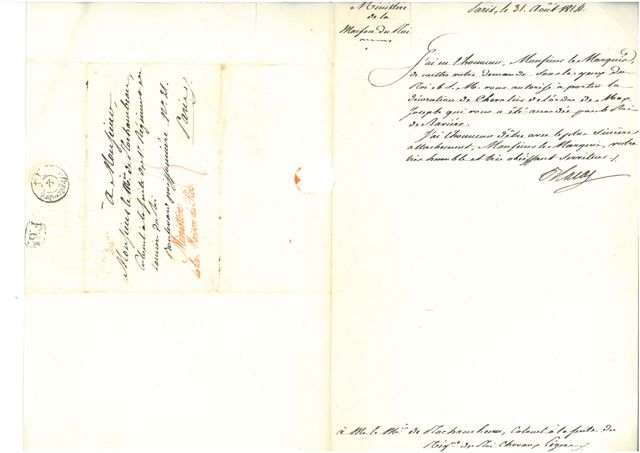 à Monsieur
Monsieur le Mis. de Rochambeau,
Colonel à la suite du 1er Régiment de
Lancier du Roi
Boulevard poissonnière no. 21.
Paris
Ministère
de la Maison du Roi
Ministère
de la
Maison du Roi
Paris, le 31. Août 1814.
J'ai eu l'honneur, Monsieur le Marquis,
de mettre votre demande sous les yeux du
Roi et S. M. vous autorise à porter la
décoration de Chevalier de l'ordre de Max
Joseph qui vous a été accordée par le Roi
de Bavière.
J'ai l'honneur d'être avec le plus sincère
attachement, Monsieur le Marquis, votre
très humble et très obéissant serviteur.
Blacas
à Mr. le Mis. de Rochambeau, Colonel à la suite du
Régt. du Roi Chevaux Légers